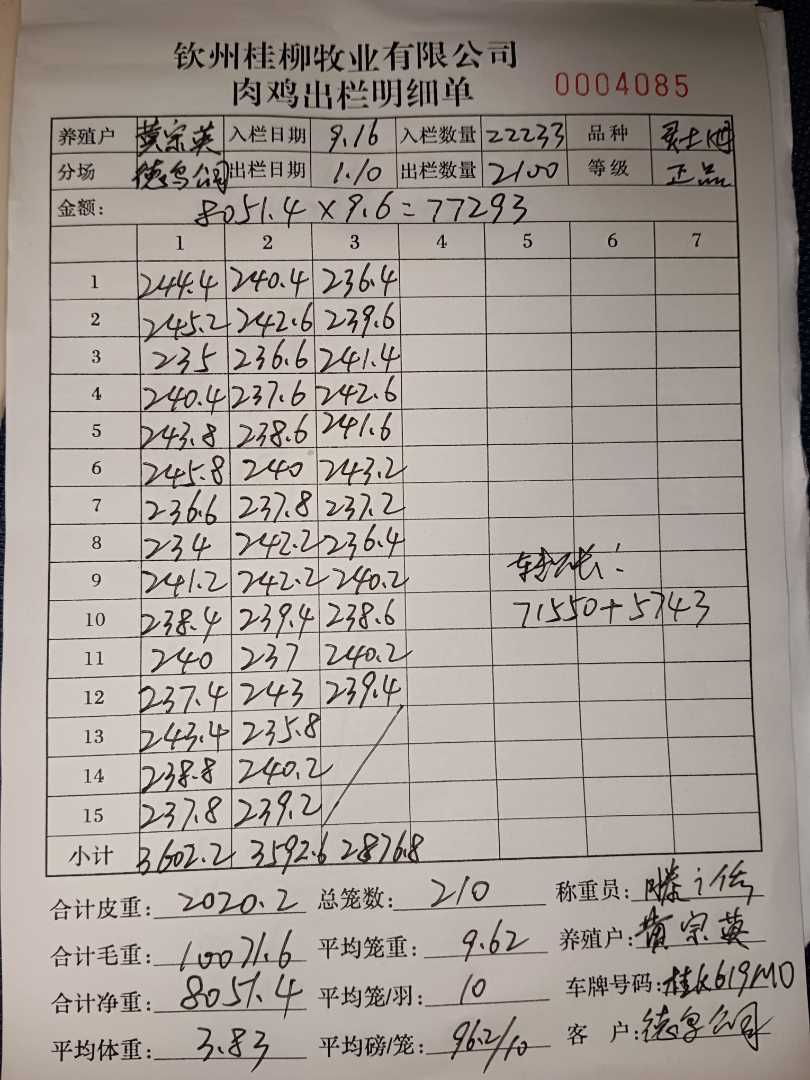 钦州桂柳牧业有限公司
肉鸡出栏明细单 0004085
养殖户 黄宗英 入栏日期 9.16 入栏数量 22233 品种
分场 公司 出栏日期 1.10 出栏数量 2100 等级 正品
金额: 8051.4×9.6=77293
1 2 3 4 5 6 7
1 244.4 240.4 236.4
2 245.2 242.6 239.6
3 235 236.6 241.4
4 240.4 237.6 242.6
5 243.8 238.6 241.6
6 245.8 240 243.2
7 236.6 237.8 237.2
8 234 242.2 236.4
9 241.2 242.2 240.2 转账:
10 238.4 239.4 238.6 71550+5743
11 240 237 240.2
12 237.4 243 239.4
13 243.4 235.8
14 238.8 240.2
15 237.8 239.2
小计 3602.2 3592.6 2876.8
合计皮重: 2020.2 总笼数: 210 称重员:
合计毛重: 10071.6 平均笼重: 9.62 养殖户: 黄宗英
合计净重: 8051.4 平均笼/羽: 10 车牌号码: 桂K619M0
平均体重: 3.83 平均磅/笼: 96.2/10 客户: 公司